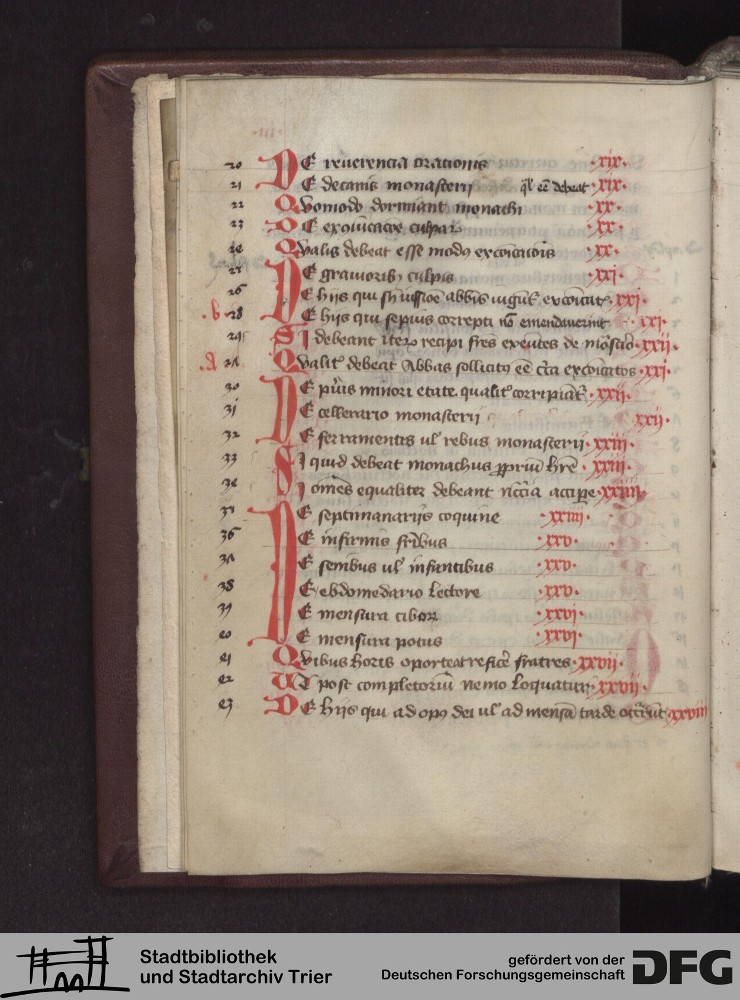 20 DE reuerencia orationis ·xix·
21 DE decanis monasterii ql̓r eē debeāt ·xix·
22 Quomodo dormiant monachi ·xx·
23 DE excōicacōe culpaꝝ ·xx·
24 Qvalis debeat esse modꝰ excōicacōis ·xx·
25 DE grauioribꝫ culpis ·xxi·
26 DE hijs qui sn̄ iussiōe abbīs iūgūt̉ excōicat̉ ·xxi·
·b· 28 DE hijs qui sepius correpti nō emendauerint ·xxi·
29 SI debeant iteꝝ recipi frēs exeūtes de mōstīo ·xxii·
·a· 27 Qvalit̉ debeat Abbas sollicitꝰ eē cīca excōicatos ·xxi·
30 DE pūīs minori etate qualit̉ corripiāt̉ ·xxii·
31 DE cellerario monasterii ·xxii·
32 DE ferramentis ul̓ rebus monasterii ·xxiii·
33 SI quid debeat monachus ꝓpriū hr̄e ·xxiii·
34 SI omēs equaliter debeant nc̄c̄ia accipe ·xxiiii·
35 DE septimanarijs coquine ·xxiiii·
36 DE infirmis fr̄ibus ·xxv·
37 DE senibus ul̓ infantibus ·xxv·
38 DE ebdomedario lectore ·xxv·
39 DE mensura ciboꝝ ·xxvi·
40 DE mensura potus ·xxvi·
41 Qvibus horis oporteat reficē fratres ·xxvii·
42 UT post completoriū nemo loquatur ·xxvii·
43 DE hijs qui ad opꝰ dei ul̓ ad mensā tarde occr̄ūt ·xxviii
Stadtbibliothek
und Stadtarchiv Trier
gefördert von der
Deutschen Forschungsgemeinschaft
DFG